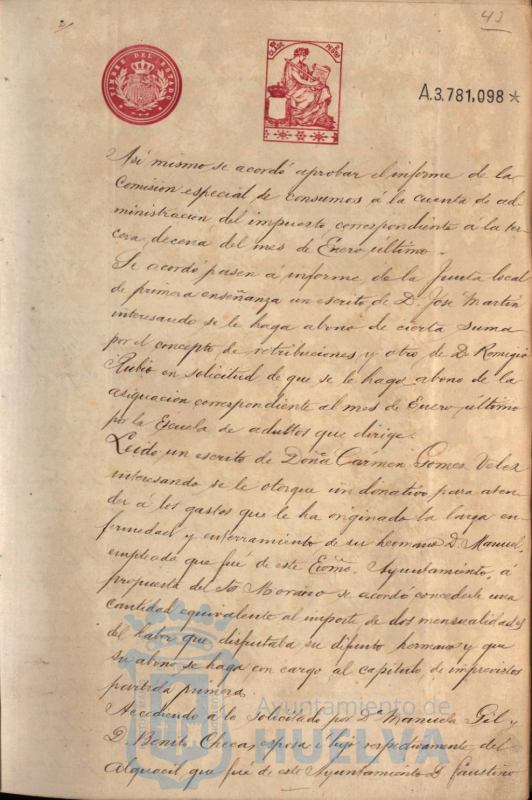 2/
43
TIMBRE DEL ESTADO
CLASE
A.3.781,098*
Asi mismo se acordó aprobar el informe de la
Comisión especial de consumos á la cuenta de ad-
ministracion del impuesto, correspondiente á la ter-
cera decena del mes de Enero último.
Se acordó pasen á informe de la Junta local
de primera enseñanza un escrito de D. José Martin
interesando se le haga abono de cierta suma
por el concepto de retribuciones y otro de D. Remigio
Rubio en solicitud de que se le haga abono de la
asignacion correspondiente al mes de Enero último
por la Escuela de adultos que dirige.
Leido un escrito de Doña Cármen Gomez Velez
interesando se le otorgue un donativo para aten-
der á los gastos que le ha originado la larga en-
fermedad y enterramiento de su hermano D. Manuel,
empleado que fué de este Excmo. Ayuntamiento, á
propuesta del Sr. Moreno se acordó concederle una
cantidad equivalente al importe de dos mensualidades
del haber que disfrutaba su difunto hermano y que
su abono se haga con cargo al capitulo de imprevistos
partida primera.
Accediendo á lo solicitado por Dª Manuela Gil y
D. Benito Checa, esposa é hijo respectivamente del
Alguacil que fué de este Ayuntamiento D. Faustino
Ayuntamiento de
HUELVA